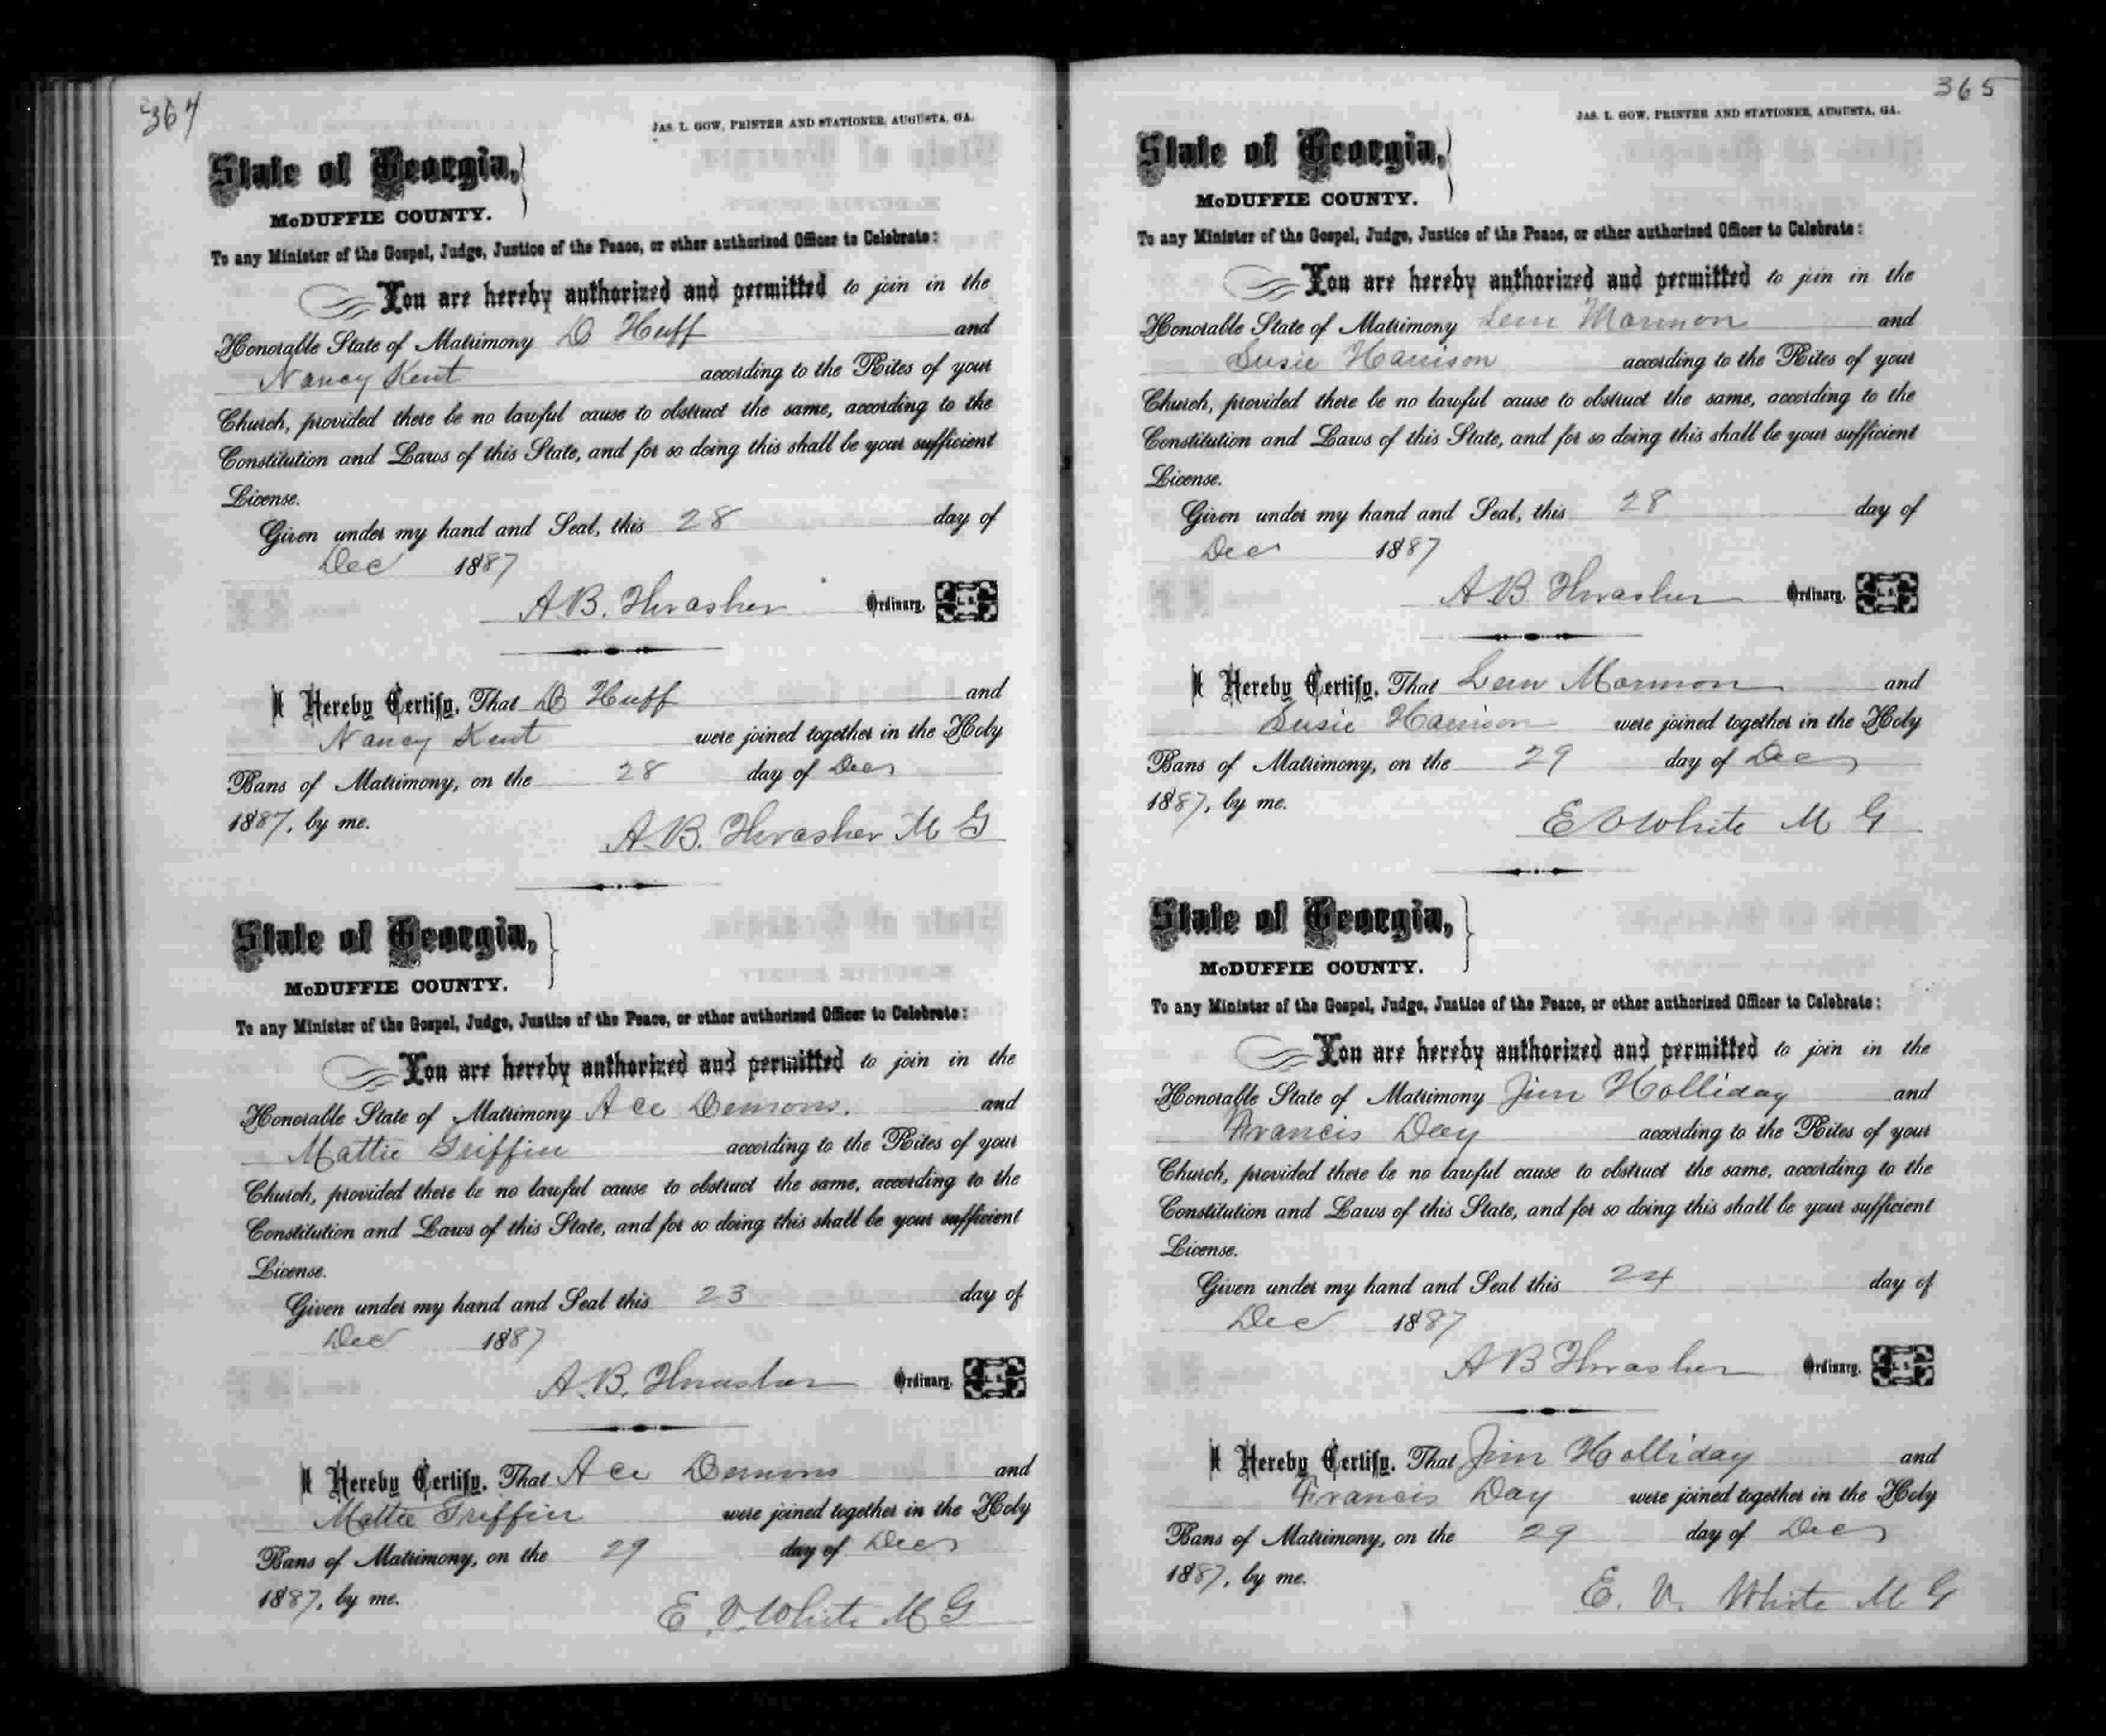 364
JAS. L. GOW, PRINTER AND STATIONER, AUGUSTA, GA.
State of Georgia,
McDUFFIE COUNTY.
To any Minister of the Gospel, Judge, Justice of the Peace, or other authorized Officer to Celebrate:
You are hereby authorized and permitted to join in the
Honorable State of Matrimony D Huff and
Nancy Kent according to the Rites of your
Church, provided there be no lawful cause to obstruct the same, according to the
Constitution and Laws of this State, and for so doing this shall be your sufficient
License.
Given under my hand and Seal, this 28 day of
Dec 1887
A.B. Thrasher Ordinary. L. S.
I Hereby Certify, That D Huff and
Nancy Kent were joined together in the Holy
Bans of Matrimony, on the 28 day of Dec
1887, by me.
A.B. Thrasher M G
State of Georgia,
McDUFFIE COUNTY.
To any Minister of the Gospel, Judge, Justice of the Peace, or other authorized Officer to Celebrate:
You are hereby authorized and permitted to join in the
Honorable State of Matrimony Ace Demons. and
Mattie Griffin according to the Rites of your
Church, provided there be no lawful cause to obstruct the same, according to the
Constitution and Laws of this State, and for so doing this shall be your sufficient
License.
Given under my hand and Seal this 23 day of
Dec 1887
A.B. Thrasher Ordinary. L. S.
I Hereby Certify, That Ace Demons and
Mattie Griffin were joined together in the Holy
Bans of Matrimony, on the 29 day of Dec
1887, by me.
E. V. White M G
365
JAS. L. GOW, PRINTER AND STATIONER, AUGUSTA, GA.
State of Georgia,
McDUFFIE COUNTY.
To any Minister of the Gospel, Judge, Justice of the Peace, or other authorized Officer to Celebrate:
You are hereby authorized and permitted to join in the
Honorable State of Matrimony Lem Marmon and
Susie Harrison according to the Rites of your
Church, provided there be no lawful cause to obstruct the same, according to the
Constitution and Laws of this State, and for so doing this shall be your sufficient
License.
Given under my hand and Seal, this 28 day of
Dec 1887
A B Thrasher Ordinary. L. S.
I Hereby Certify, That Lem Marmon and
Susie Harrison were joined together in the Holy
Bans of Matrimony, on the 29 day of Dec
1887, by me.
E V White M G
State of Georgia,
McDUFFIE COUNTY.
To any Minister of the Gospel, Judge, Justice of the Peace, or other authorized Officer to Celebrate:
You are hereby authorized and permitted to join in the
Honorable State of Matrimony Jim Holliday and
Francis Day according to the Rites of your
Church, provided there be no lawful cause to obstruct the same, according to the
Constitution and Laws of this State, and for so doing this shall be your sufficient
License.
Given under my hand and Seal this 24 day of
Dec 1887
A B Thrasher Ordinary. L. S.
I Hereby Certify, That Jim Holliday and
Francis Day were joined together in the Holy
Bans of Matrimony, on the 29 day of Dec
1887, by me.
E. V. White M G